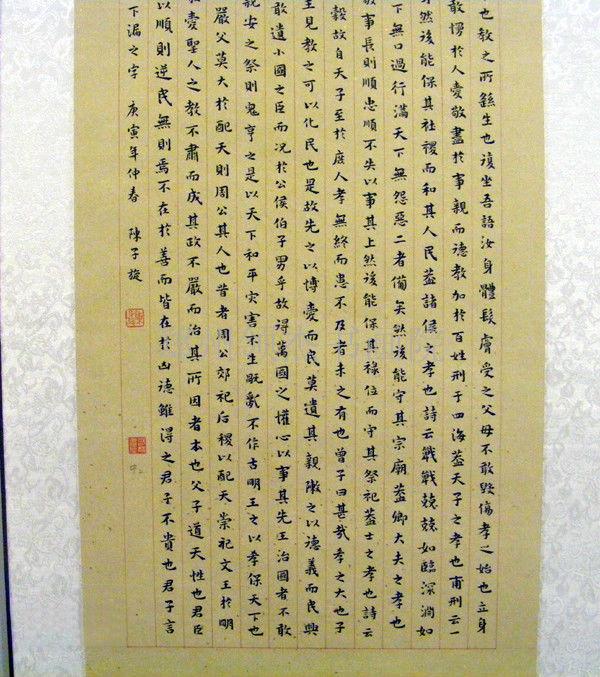 也教之所繇生也復坐吾語汝身體髮膚受之父母不敢毀傷孝之始也立身
敢慢於人愛敬盡於事親而德教加於百姓刑于四海蓋天子之孝也甫刑云一
身然後能保其社稷而和其人民蓋諸侯之孝也詩云戰戰兢兢如臨深淵如
下無口過行滿天下無怨惡二者備矣然後能守其宗廟蓋卿大夫之孝也
敬事長則順忠順不失以事其上然後能保其祿位而守其祭祀蓋士之孝也詩云
穀故自天子至於庶人孝無終而患不及者未之有也曾子曰甚哉孝之大也子
王見教之可以化民也是故先之以博愛而民莫遺其親陳之以德義而民興
敢遺小國之臣而況於公侯伯子男乎故得萬國之懽心以事其先王治國者不敢
親安之祭則鬼亨之是以天下和平灾害不生亂不作古明王之以孝保天下也
嚴父莫大於配天則周公其人也昔者周公郊祀后稷以配天崇祀文王於明
和愛聖人之教不肅而成其政不嚴而治其所因者本也父子道天性也君臣
以順則逆民無則焉不在於善而皆在於凶德雖得之君子不貴也君子言
下漏之字 庚寅年仲春 陳子旋